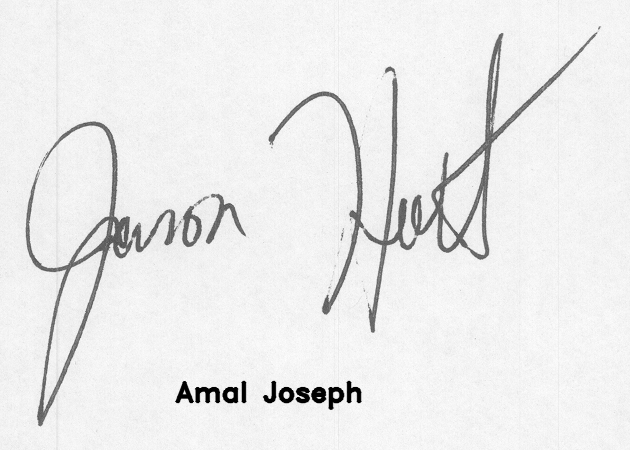 Jason Hurst
Amal Joseph